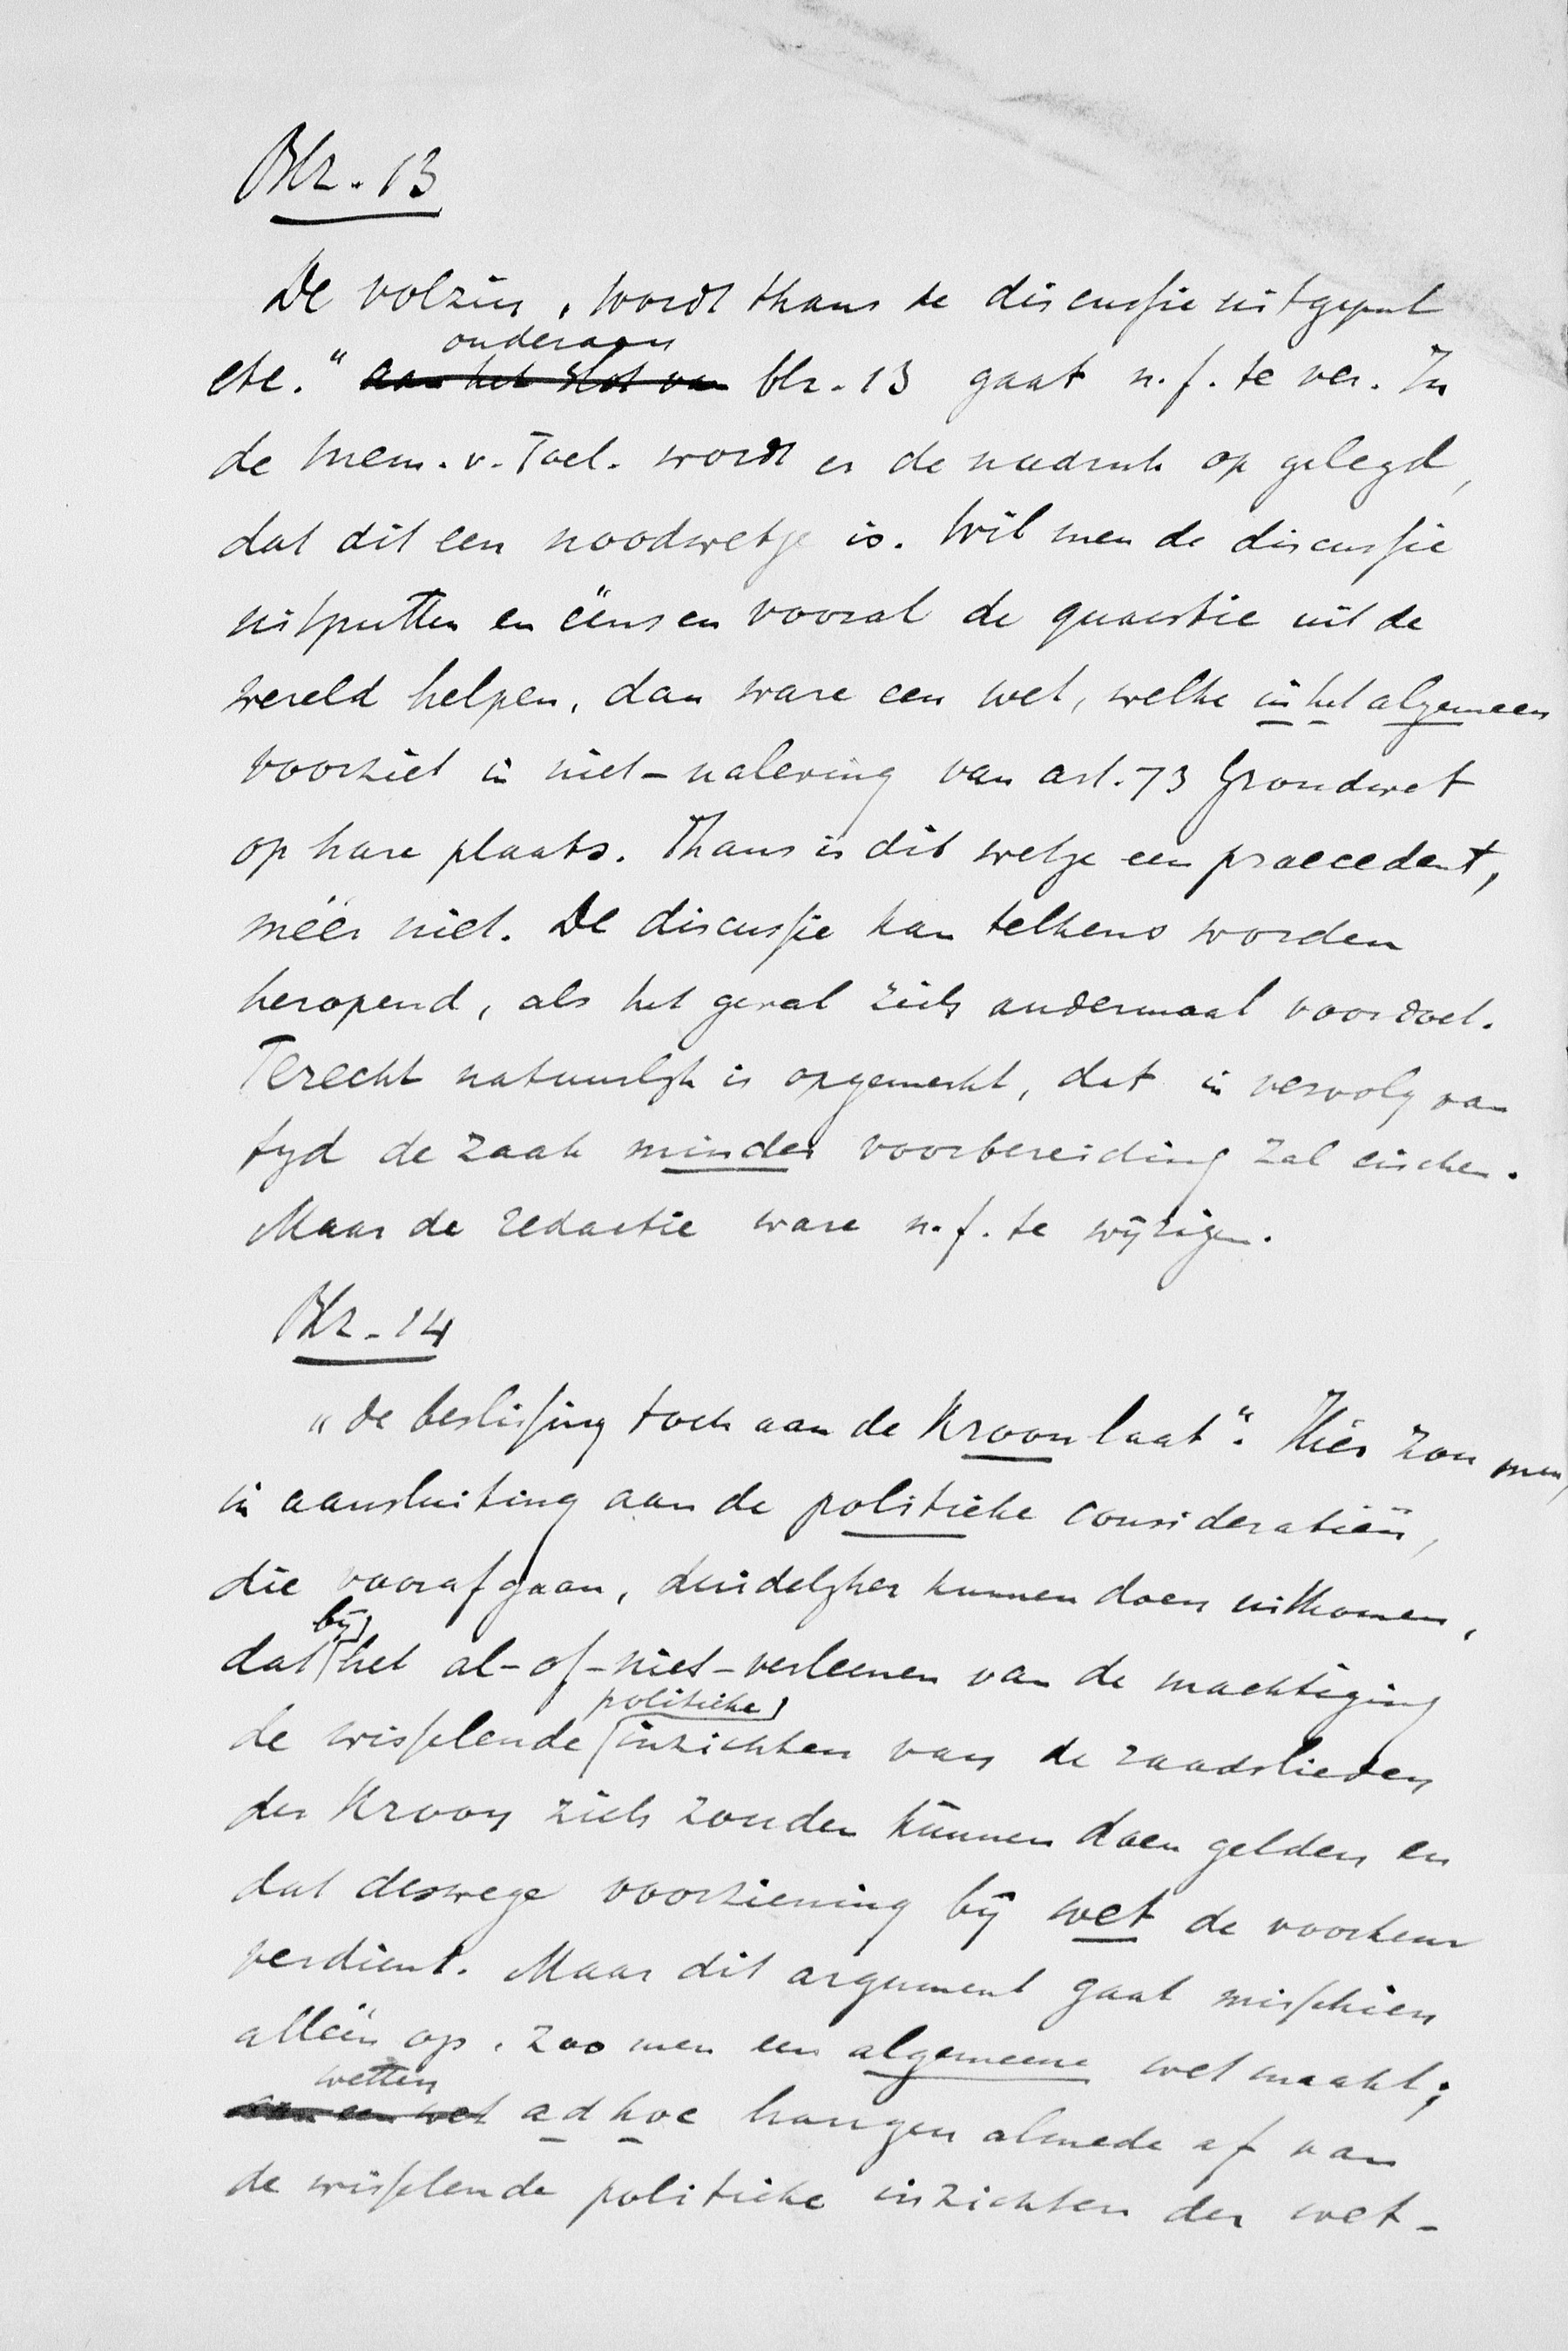 Blz. 13
De volzin „wordt thans de discussie uitgeput
onderaan
etc." aan het slot van blz. 13 gaat n.f. te ver. In
de Mem. v. Toel. wordt er de nadruk op gelegd,
dat dit een noodwetje is. Wil men de discussie
uitputten en ééns en vooral de quaestie uit de
wereld helpen, dan ware een wet, welke in het algemeen
voorziet in niet-naleving van art. 73 Grondwet
op hare plaats. Thans is dit wetje een praecedent,
méér niet. De discussie kan telkens worden
heropend, als het geval zich andermaal voordoet.
Terecht natuurlijk is opgemerkt, dat in vervolg van
tijd de zaak minder voorbereiding zal eischen.
Maar de redactie ware n.f. te wijzigen.
Blz. 14
„de beslissing toch aan de Kroon laat". Hier zou men,
in aansluiting aan de politieke consideratiën,
die voorafgaan, duidelijker kunnen doen uitkomen,
bij
dat het al-of-niet-verleenen van de machtiging
politieke
de wisselende inzichten van de raadslieden
der Kroon zich zouden kunnen doen gelden en
dat deswege voorziening bij wet de voorkeur
verdient. Maar dit argument gaat misschien
alléén op, zoo men een algemeene wet maakt;
wetten
aan een wet ad hoc hangen almede af van
de wisselende politieke inzichten der wet-